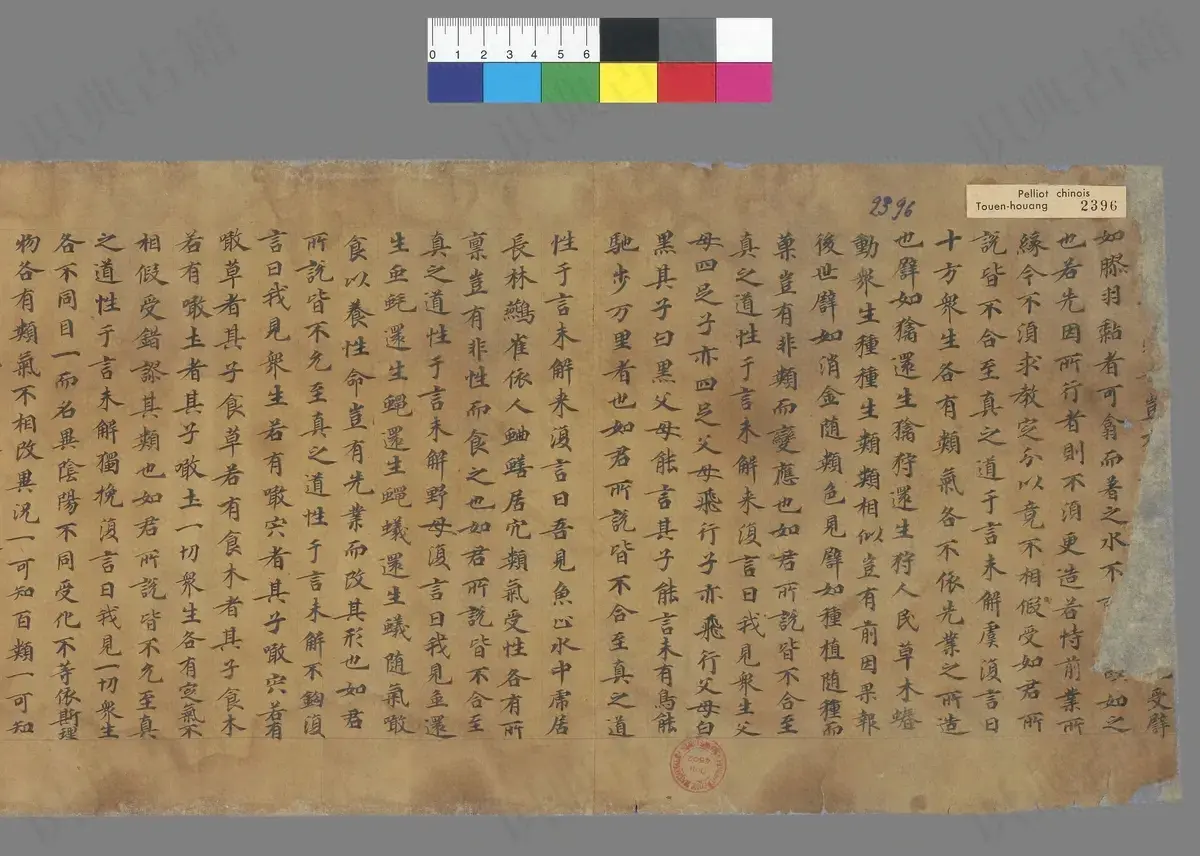 0 1 2 3 4 5 6
Pelliot chinois
Touen-houang 2396
2396
豈
受譬
如膠羽黏者可翕而著之水不 如之
也若先因所行者則不須更造若恃前業所
緣今不須求教定分以竟不相假受如君所
說皆不合至真之道于言未解虞復言曰
十方衆生各有類氣各不依先業之所造
也譬如獢還生獢狩還生狩人民草木蠢
動衆生種種生類類相似豈有前因果報
後世譬如消金随類色見譬如種植随種而
菓豈有非類而變應也如君所說皆不合至
真之道性于言未解来復言曰我見衆生父
母四足子亦四足父母飛行子亦飛行父母白
黑其子白黑父母能言其子能言未有鳥能
馳步万里者也如君所說皆不合至真之道
性于言未解来復言曰吾見魚止水中席居
長林鷰雀依人蚰鱔居穴類氣受性各有所
禀豈有非性而食之也如君所說皆不合至
真之道性于言未解野母復言曰我見魚還
生魚蚝還生蠅還生蠅蟻還生蟻随氣噉
食以養性命豈有先業而改其形也如君
所說皆不允至真之道性于言未解不鉤復
言曰我見衆生若有噉宍者其子噉宍若有
噉草者其子食草若有食木者其子食木
若有噉土者其子噉土一切衆生各有定氣不
相假受錯謬其類也如君所說皆不允至真
之道性于言未解獨挽復言曰我見一切衆生
各不同目一而名異陰陽不同受化不等依斯理
物各有類氣不相改異況一可知百類一可知